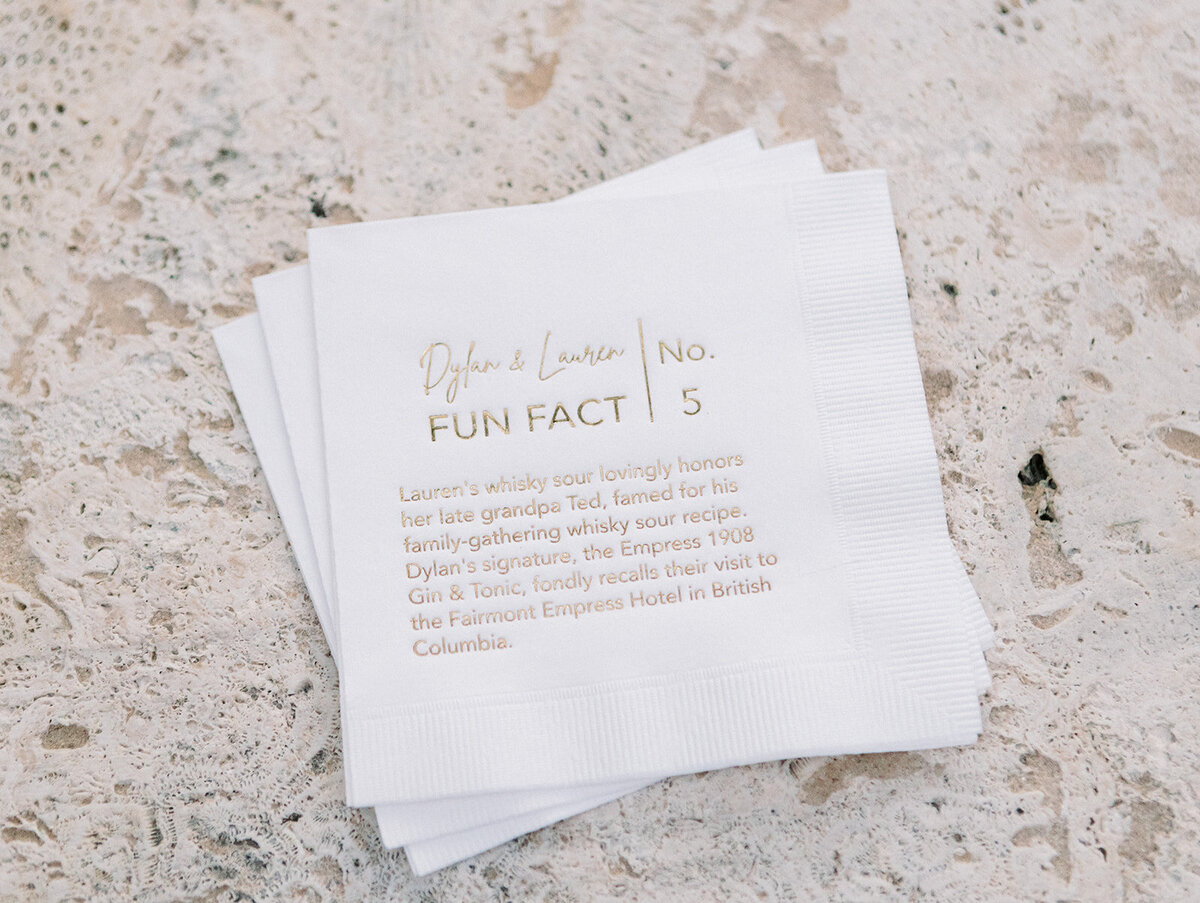 Dylan & Lauren
FUN FACT
No.
5
Lauren's whisky sour lovingly honors
her late grandpa Ted, famed for his
family-gathering whisky sour recipe.
Dylan's signature, the Empress 1908
Gin & Tonic, fondly recalls their visit to
the Fairmont Empress Hotel in British
Columbia.